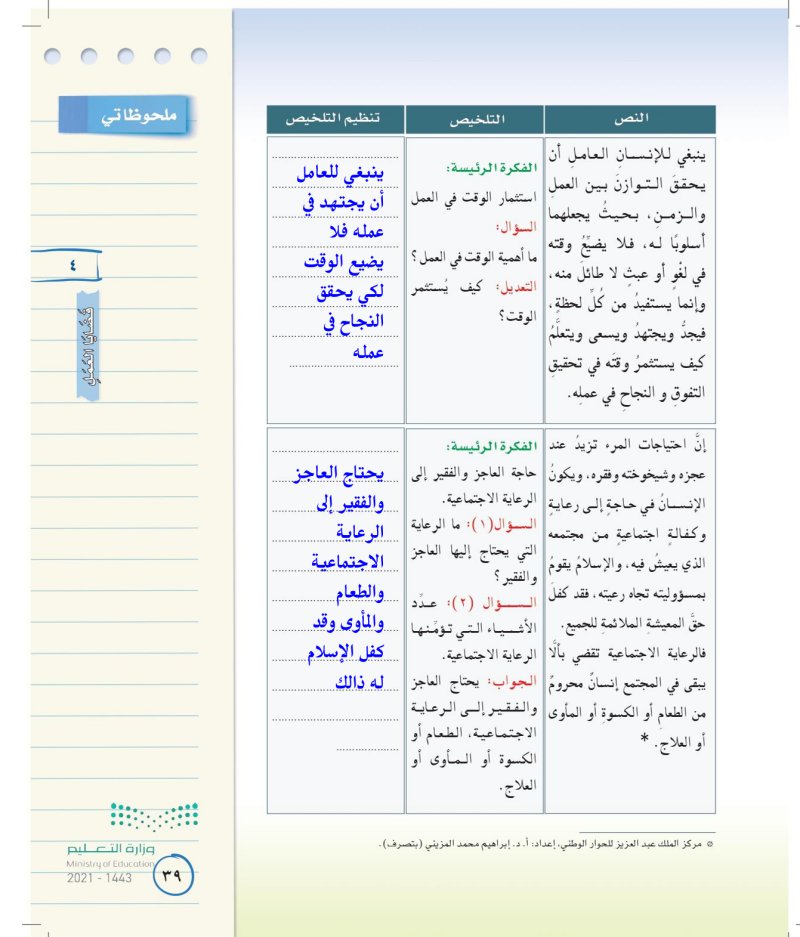 ملحوظاتي
النص
التلخيص
تنظيم التلخيص
ينبغي للإنسانِ العاملِ أن
يحققَ التوازنَ بين العملِ
والزمنِ، بحيثُ يجعلهما
أسلوبًا له، فلا يضيِّعُ وقته
في لغْوٍ أو عبثٍ لا طائل منه،
وإنما يستفيدُ من كُلِّ لحظةٍ،
فيجدُّ ويجتهدُ ويسعى ويتعلَّمُ
كيف يستثمرُ وقتَه في تحقيقِ
التفوقِ و النجاحِ في عملِه.
الفكرة الرئيسة:
استثمار الوقت في العمل
السؤال:
ما أهمية الوقت في العمل؟
التعديل: كيف يُستثمر
الوقت؟
ينبغي للعامل
أن يجتهد في
عمله فلا
يضيع الوقت
لكي يحقق
النجاح في
عمله
إنَّ احتياجات المرء تزيدُ عند
عجزه وشيخوخته وفقره، ويكونُ
الإنسانُ في حاجةٍ إلى رعايةٍ
وكفالةٍ اجتماعيةٍ من مجتمعه
الذي يعيشُ فيه، والإسلامُ يقومُ
بمسؤوليته تجاه رعيته، فقد كفلَ
حقَّ المعيشةِ الملائمة للجميع.
فالرعاية الاجتماعية تقضي بألَّا
يبقى في المجتمع إنسانٌ محرومٌ
من الطعامِ أو الكسوةِ أو المأوى
أو العلاجِ. *
الفكرة الرئيسة:
حاجة العاجز والفقير إلى
الرعاية الاجتماعية.
السؤال(١): ما الرعاية
التي يحتاج إليها العاجز
والفقير؟
السؤال (٢): عدِّد
الأشياء التي تؤمّنها
الرعاية الاجتماعية.
الجواب: يحتاج العاجز
والفقير إلى الرعاية
الاجتماعية، الطعام أو
الكسوة أو المأوى أو
العلاج.
يحتاج العاجز
والفقير إلى
الرعاية
الاجتماعية
والطعام
والمأوى وقد
كفل الإسلام
له ذالك
٤
قضايا العمل
* مركز الملك عبد العزيز للحوار الوطني، إعداد: أ. د. إبراهيم محمد المزيني (بتصرف).
وزارة التعليم
Ministry of Education
2021 - 1443
٣٩